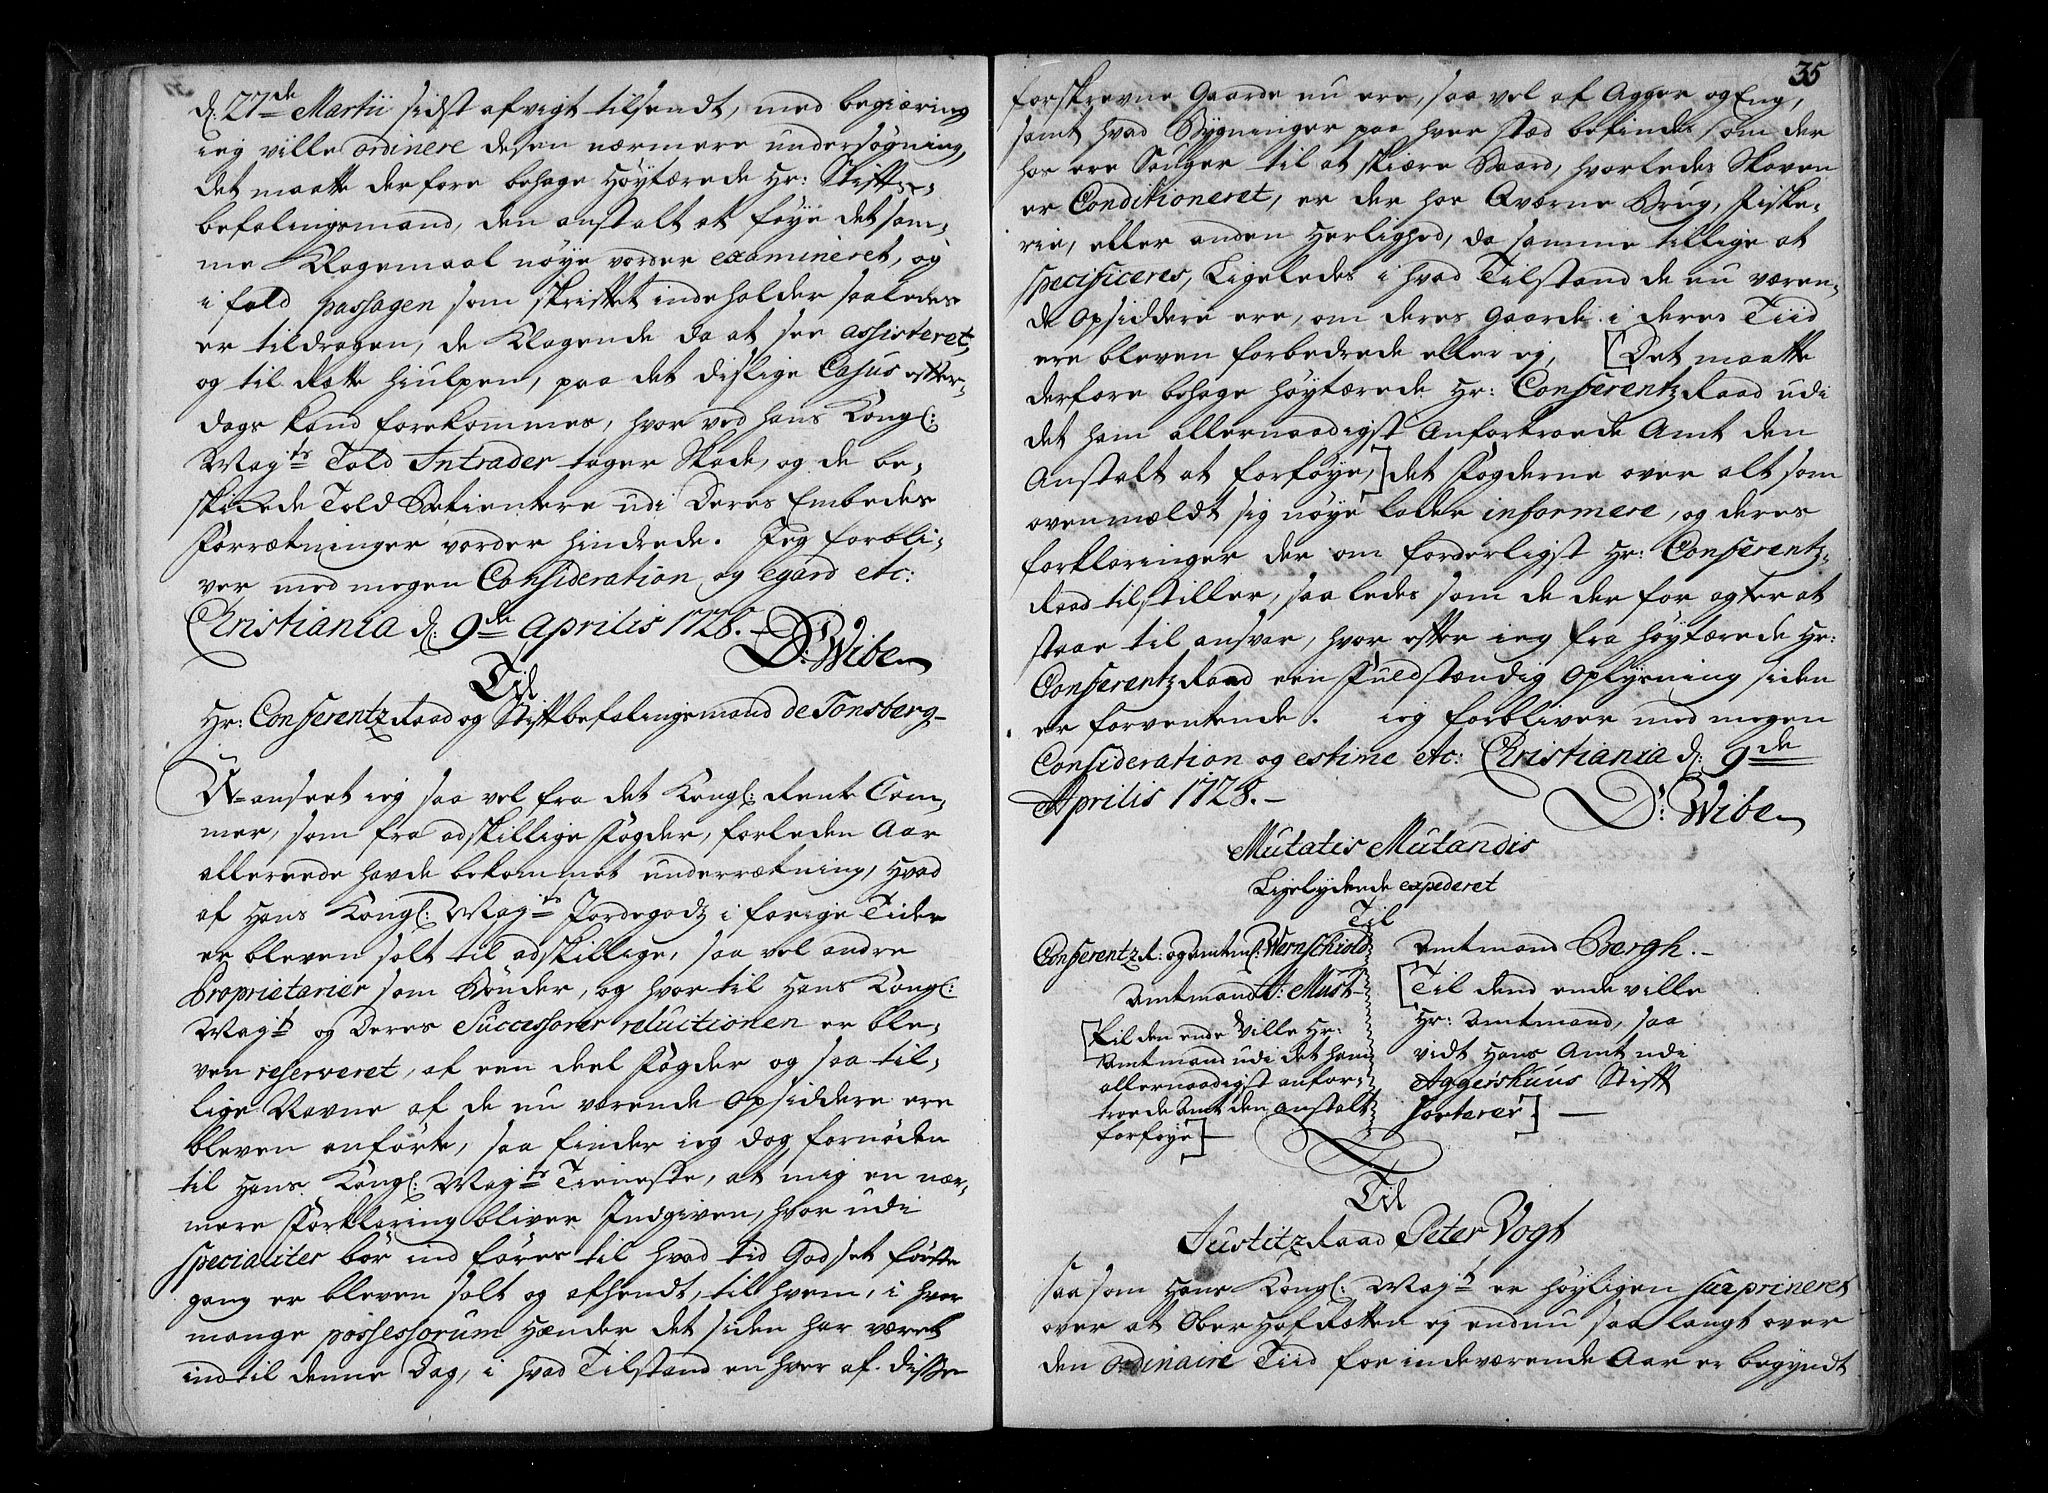 d: 27de Martii sidst afvigt tilsendt, med begiæring
ieg ville ordinere desen nærmere undersøgning,
det maatte derfore behage Høytærede Hr: Stifts-
befalingsmand, den anstalt at føye det sam-
me Klagemaal nøye vorder examineret, og
i fald passagen som skriftet indeholder saaledes
er tildragen, de Klagende da at see assisteret,
og til Rætte hiulpen, paa det dislige Casus efter-
dags kand forekommes, hvor ved hans Kongl:
Majts Told Intrader tager Skade, og de be-
skikkede Told Betientere udi Deres Embedes
Forrætninger vorder hindrede. Jeg forbli-
ver med megen Consideration og egard etc:
Christiania d: 9de Aprilis 1728. D: Wibe
Til
Hr: Conferentz Raad og Stiftbefalingsmand de Tonsberg
U-anseet ieg saa vel fra det Kongl: Rente Cam-
mer, som fra adskillige Fogder, forleden Aar
allereede havde bekommet underrætning, hvad
af Hans Kongl: Majts Jordegodz i forige Tider
er bleven solt til adskillige, saa vel andre
Proprietarier som Bønder, og hvortil Hans Kongl:
Majt og Deres Successorer reluctionen er ble-
ven reserveret, af een deel Fogder og saa til-
lige Navne af de nu værende Opsiddere ere
bleven anførte, saa finder ieg dog fornøden
til Hans Kongl: Majts Tieneste, at mig en nær-
mere Forklaring bliver Indgiven, hvor udi
specialiter bør ind føres til hvad tid Godset første
gang er bleven solt og afhendt, til hvem, i hvor
mange possessorum Hænder det siden har været
indtil denne Dag, i hvad Tilstand en hver af disse
35
forskrevne Gaarde nu ere, saa vel af Agger og Eng,
samt hvad Bygninger paa hver stæd befindes som der
hos ere Sauger til at skiære Baard, hvorledes Skoven
er Conditioneret, er der hos Qværne Brug, Fiske-
rie, eller anden Herlighed, da samme tillige at
specificeres, Ligeledes i hvad Tilstand de nu væren-
de Opsiddere ere, om deres Gaarde i deres Tiid
ere bleven forbedrede eller ej, [Det maatte
derfore behage Høytærede Hr: Conferentz Raad udi
det ham allernaadigst Anfortroede Amt den
Anstalt at forføye,] det Fogderne over alt som
ovenmældt sig nøye lader informere, og deres
forklaringer der om forderligst Hr: Conferentz-
Raad tilstiller, saa ledes som de der for agter at
staae til ansvar, hvor efter ieg fra Høytærede Hr:
Conferentz Raad een Fuldstændig Oplysning siden
er forventende. ieg forbliver med megen
Consideration og estime etc: Christiania d: 9de
Aprilis 1728.- D: Wibe
Mutatis Mutandis
Ligelydende expederet
Til
Conferentz R: og Amtm: Wernschiold
Amtmand A: Must
[til den ende Ville Hr:
Amtmand udi det ham
allernaadigst anfor-
troede Amt den anstalt
forføye]
Amtmand Bergh.
[Til dend ende ville
Hr: Amtmand, saa
vidt Hans Amt udi
Aggershuus Stift
sorterer]
Til
Justitz Raad Peter Vogt
Saasom Hans Kongl: Majt er høyligen surprineret
over at Ober Hof Rætten ej endnu saa langt over
den ordinaire Tiid for indeværende Aar er begyndt